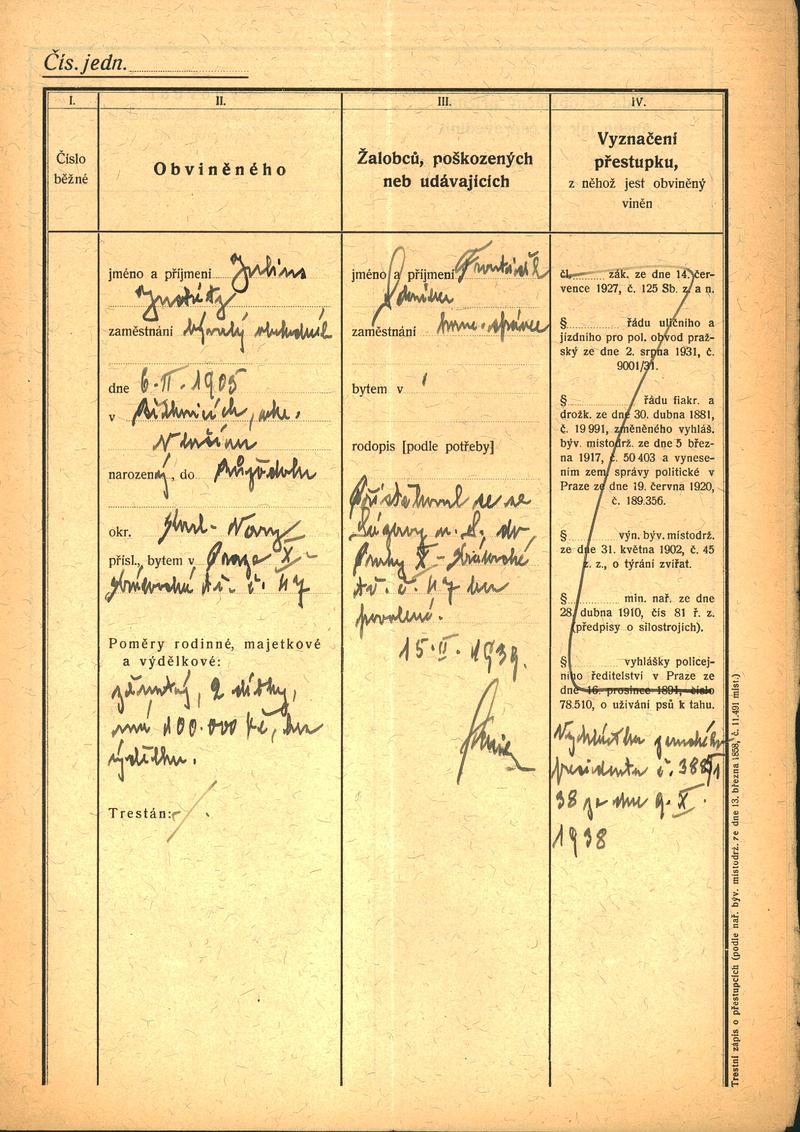 Čís. jedn.
I.
Číslo
běžné
II.
Obviněného
III.
Žalobců, poškozených
neb udávajících
IV.
Vyznačení
přestupku,
z něhož jest obviněný
viněn
jméno a příjmení Julius
zaměstnání bývalý obchodník
dne 6.II.1905
v
narozený, do
okr.
přísl., bytem v Praze X-
čp. č. 47
Poměry rodinné, majetkové
a výdělkové:
ženatý, 2 dítky,
má 100.000 Kč, bez
výdělku.
Trestán:
jméno a příjmení František
zaměstnání
bytem v
rodopis [podle potřeby]
Přistěhoval se ze
do
Prahy X-
č. 47 bez
povolení.
15.II.1939.
čl. zák. ze dne 14. čer-
vence 1927, č. 125 Sb. z. a n.
§ řádu uličního a
jízdního pro pol. obvod praž-
ský ze dne 2. srpna 1931, č.
9001/31.
§ řádu fiakr. a
drožk. ze dne 30. dubna 1881,
č. 19 991, změněného vyhláš.
býv. místodrž. ze dne 5 břez-
na 1917, č. 50 403 a vynese-
ním zem. správy politické v
Praze ze dne 19. června 1920,
č. 189.356.
§ výn. býv. místodrž.
ze dne 31. května 1902, č. 45
z. z., o týrání zvířat.
§ min. nař. ze dne
28. dubna 1910, čís 81 ř. z.
(předpisy o silostrojích).
§ vyhlášky policej-
ního ředitelství v Praze ze
dne 16. prosince 1891, číslo
78.510, o užívání psů k tahu.
Vyhláška zemského
presidenta č. 3885/
38 ze dne 9.X.
1938
Trestní zápis o přestupcích (podle nař. býv. místodrž. ze dne 13. března 1858, č. 11.491 míst.)